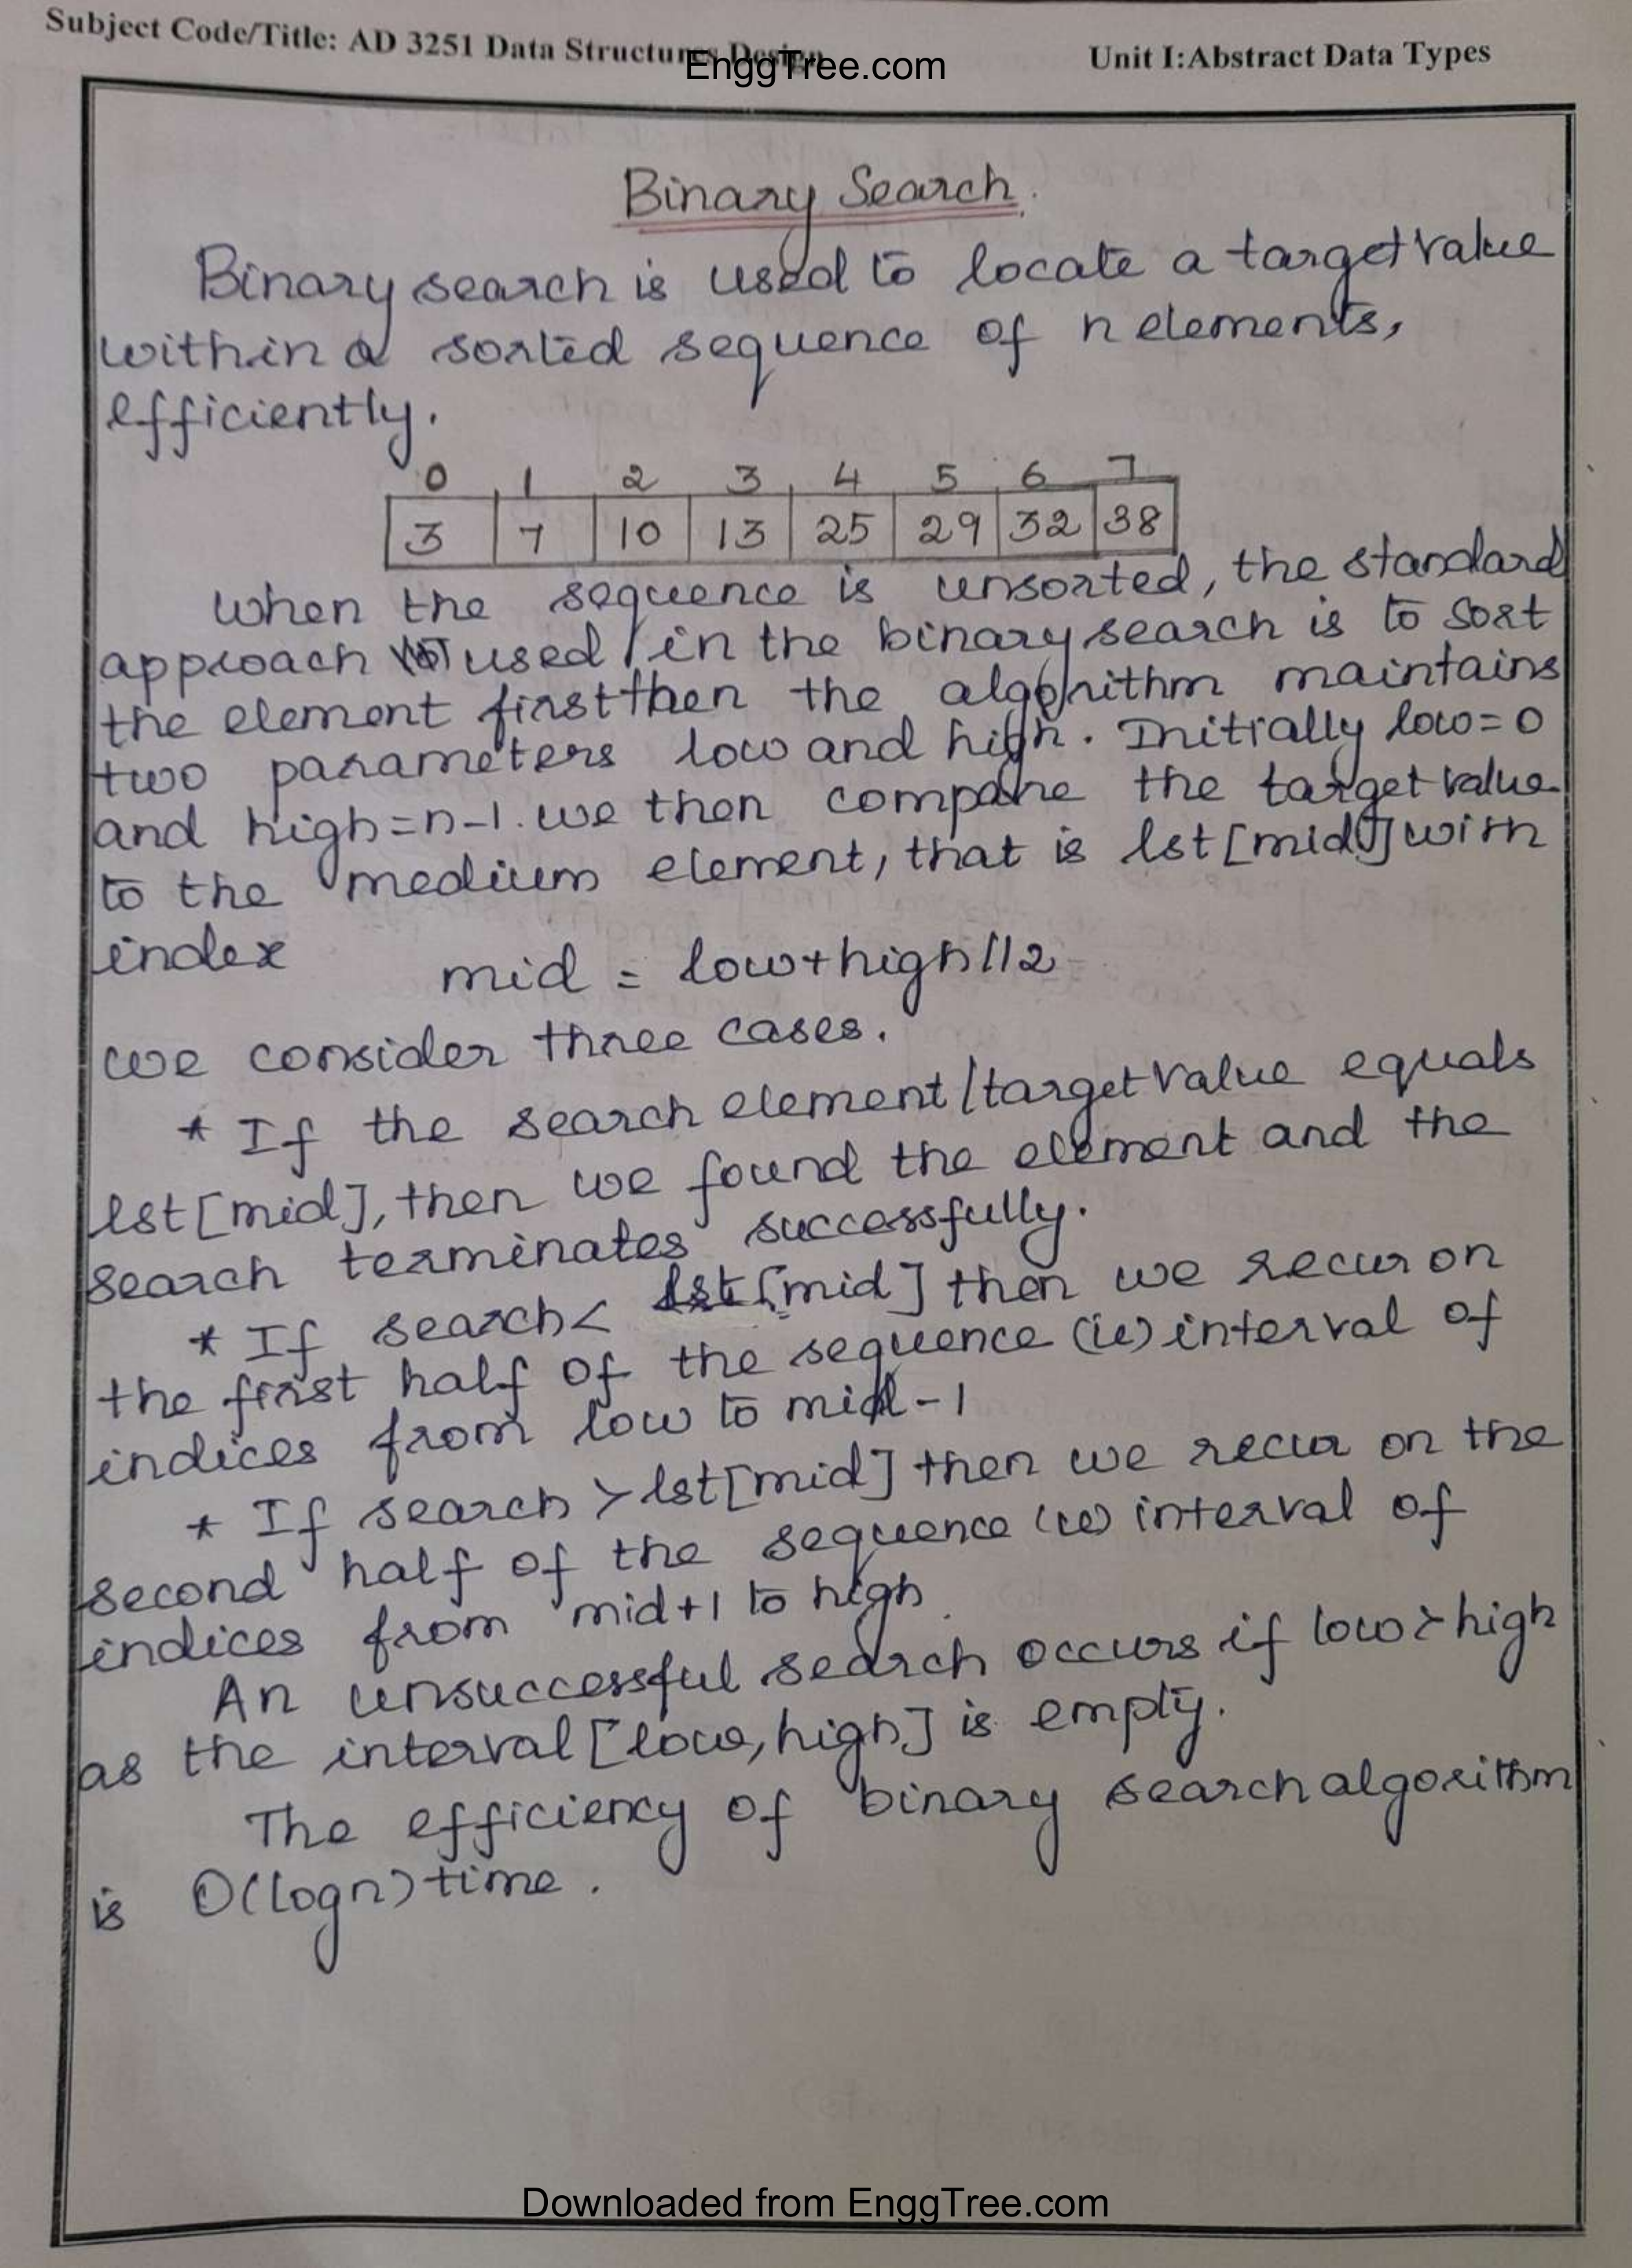 Subject Code/Title: AD 3251 Data Structures Design
EnggTree.com
Unit I:Abstract Data Types
Binary Search.
Binary search is used to locate a target value
within a sorted sequence of n elements,
efficiently.
0 1 2 3 4 5 6 7
3 7 10 13 25 29 32 38
When the sequence is unsorted, the standard
approach used in the binary search is to sort
the element first then the algorithm maintains
two parameters low and high. Initially low=0
and high=n-1. we then compare the target value
to the medium element, that is lst[mid] with
index
mid = low+high//2
we consider three cases.
* If the search element/target value equals
lst[mid], then we found the element and the
search terminates successfully.
* If search< lst[mid] then we recur on
the first half of the sequence (ie) interval of
indices from low to mid-1
* If search>lst[mid] then we recur on the
second half of the sequence (ie) interval of
indices from mid+1 to high.
An unsuccessful search occurs if low>high
as the interval [low, high] is empty.
The efficiency of binary search algorithm
is O(logn) time.
Downloaded from EnggTree.com